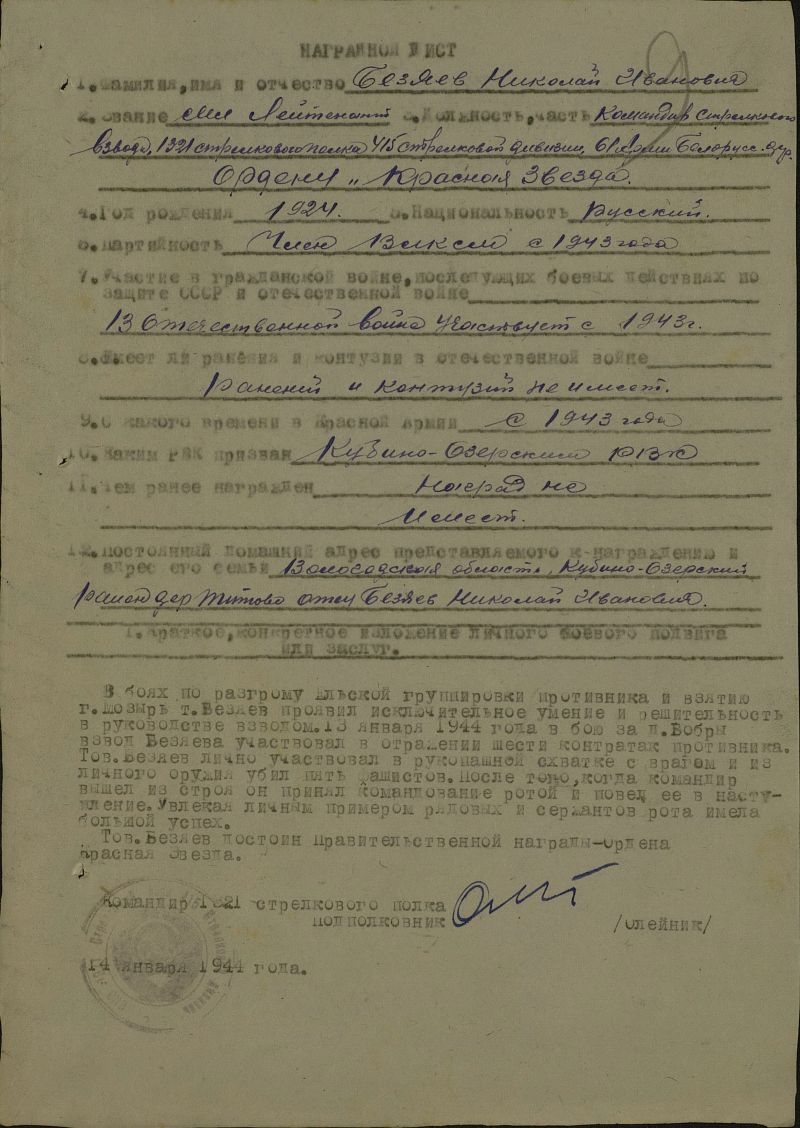 2
НАГРАДНОЙ ЛИСТ
1.Фамилия,имя и отчество Безяев Николай Иванович
2. Звание мл Лейтенант 3.Должность,часть Командир стрелкового
взвода, 1321 стрелкового полка 415 стрелковой дивизии, 61 Арм Белорусс. фр.
Ордену „Красная Звезда.
4.Год рождения 1924. 5.Национальность Русский.
6.Партийность Член Влксм с 1943 года
7.Участие в гражданской войне,последующих боевых действиях по
защите СССР и отечественной войне
В Отечественной война участвует с 1943г.
8.Имеет ли ранения и контузии в отечественной войне
Ранений и контузий не имеет.
9.С какого времени в Красной Армии с 1943 года
10.Каким РВК призван Кубино-Озерским РВК
11.Чем ранее награжден Наград не
имеет.
12.Постоянный домашний адрес представляемого к награждению и
адрес его семьи Вологодская область, Кубино-Озерский
район дер Титово отец Безяев Николай Иванович.
1.Краткое,конкретное изложение личного боевого подвига
или заслуг.
В боях по разгрому Ельской группировки противника и взятию
г.Мозырь т.Безяев проявил исключительное умение и решительность
в руководстве взводом.13 января 1944 года в бою за д.Бобры
взвод Безяева участвовал в отражении шести контратак противника.
Тов.Безяев лично участвовал в рукопашной схватке с врагом и из
личного оружия убил пять фашистов.После того,когда командир
вышел из строя он принял командование ротой и повел ее в насту-
пление.Увлекая личным примером рядовых и сержантов рота имела
большой успех.
Тов.Безяев достоин Правительственной награды-ордена
Красная Звезда.
Командир 1321 стрелкового полка
Подполковник /Олейник/
14 января 1944 года.